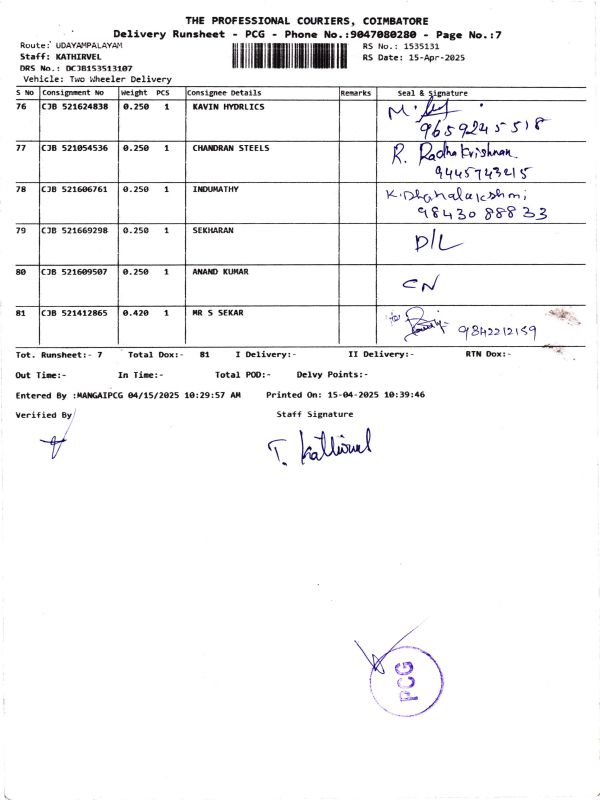 THE PROFESSIONAL COURIERS, COIMBATORE
Delivery Runsheet - PCG - Phone No.:9047080280 - Page No.:7
Route: UDAYAMPALAYAM RS No.: 1535131
Staff: KATHIRVEL RS Date: 15-Apr-2025
DRS No.: DCJB153513107
Vehicle: Two Wheeler Delivery
S No Consignment No Weight PCS Consignee Details Remarks Seal & Signature
76 CJB 521624838 0.250 1 KAVIN HYDRLICS M.
9659245518
77 CJB 521054536 0.250 1 CHANDRAN STEELS R. Radha Krishnan
9445743215
78 CJB 521606761 0.250 1 INDUMATHY K. Dhanalakshmi
98430 88833
79 CJB 521669298 0.250 1 SEKHARAN D/L
80 CJB 521609507 0.250 1 ANAND KUMAR CN
81 CJB 521412865 0.420 1 MR S SEKAR for 9842212159
Tot. Runsheet:- 7 Total Dox:- 81 I Delivery:- II Delivery:- RTN Dox:-
Out Time:- In Time:- Total POD:- Delvy Points:-
Entered By :MANGAIPCG 04/15/2025 10:29:57 AM Printed On: 15-04-2025 10:39:46
Verified By Staff Signature
T. Kathirvel
PCG